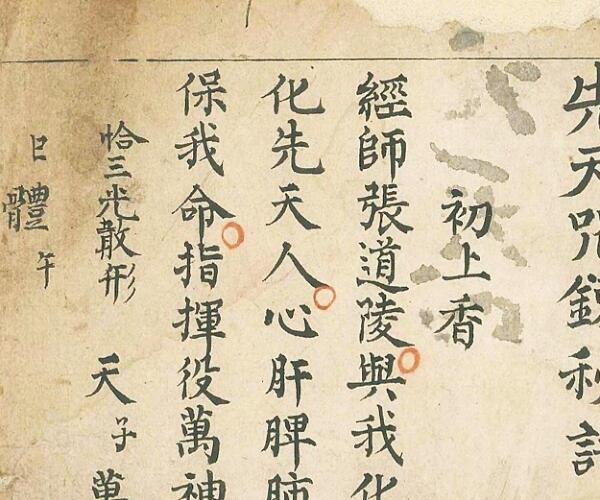 先天咒
初上香
經師張道陵與我化
化先天人心肝脾肺
保我命指揮役萬神
恰三光敢形 天子萬
日體 午